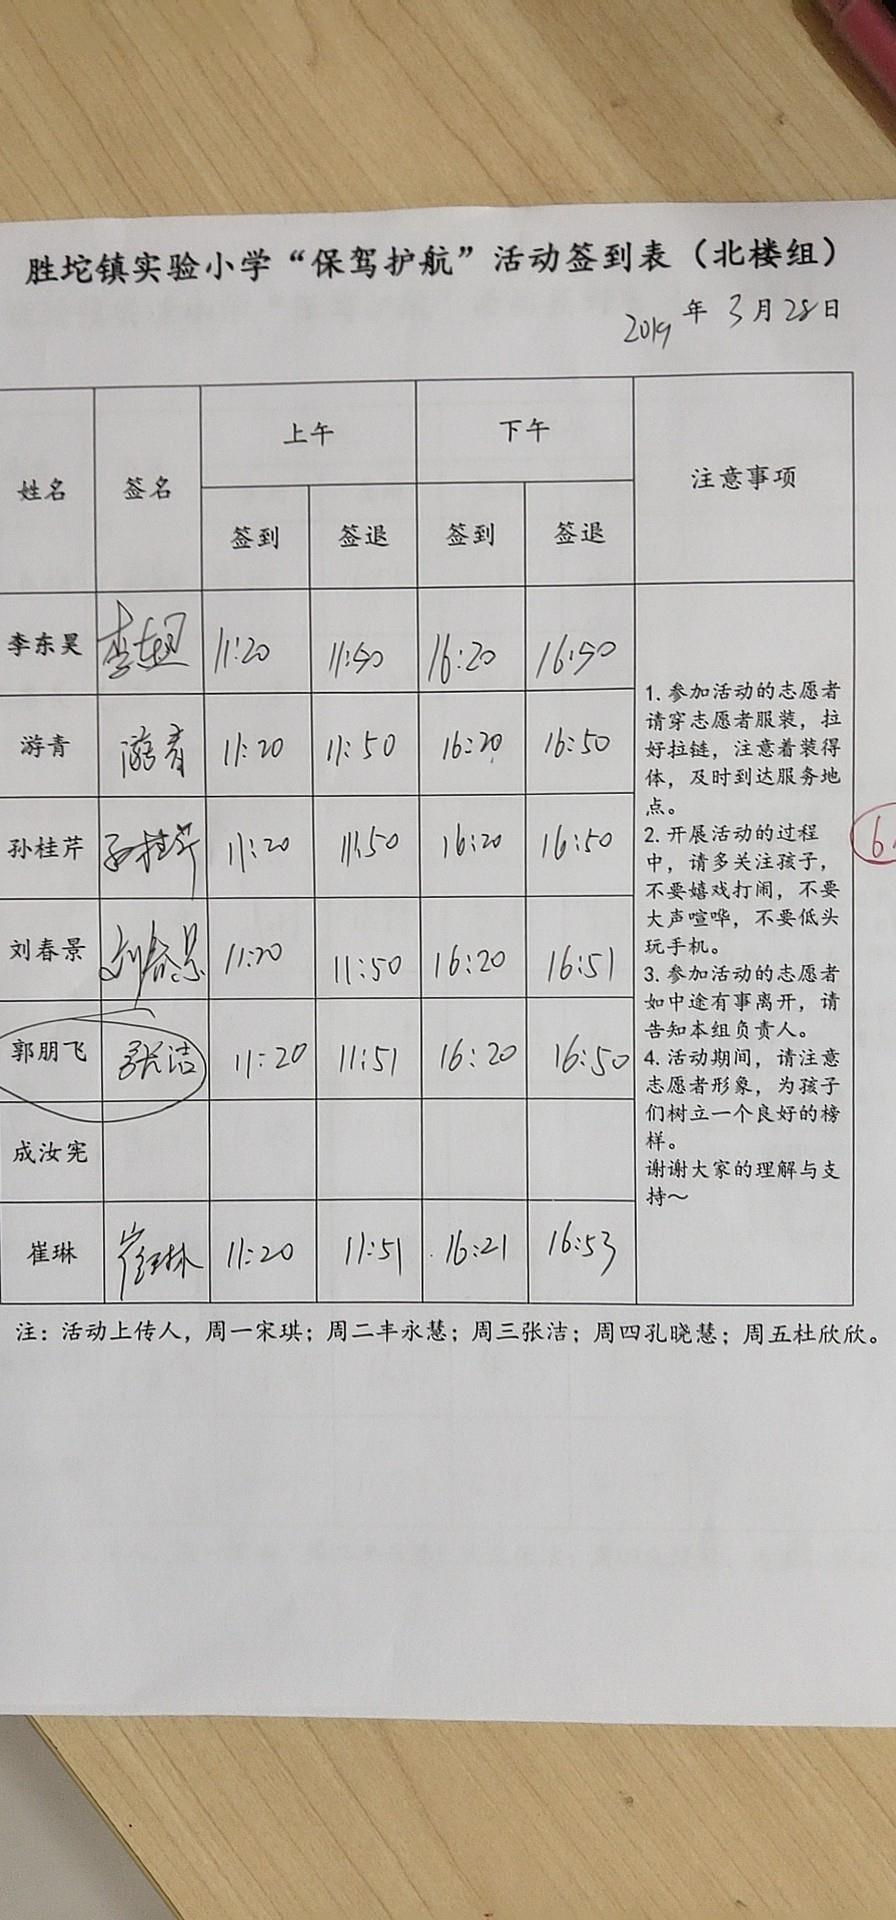 胜坨镇实验小学“保驾护航”活动签到表（北楼组）
2019年3月28日
姓名 签名 上午 下午 注意事项
签到 签退 签到 签退
李东昊 李东昊 11:20 11:50 16:20 16:50
游青 游青 11:20 11:50 16:20 16:50
孙桂芹 孙桂芹 11:20 11:50 16:20 16:50
刘春景 刘春景 11:20 11:50 16:20 16:51
郭朋飞 张洁 11:20 11:51 16:20 16:50
成汝宪
崔琳 崔琳 11:20 11:51 16:21 16:53
1. 参加活动的志愿者
请穿志愿者服装，拉
好拉链，注意着装得
体，及时到达服务地
点。
2. 开展活动的过程
中，请多关注孩子，
不要嬉戏打闹，不要
大声喧哗，不要低头
玩手机。
3. 参加活动的志愿者
如中途有事离开，请
告知本组负责人。
4. 活动期间，请注意
志愿者形象，为孩子
们树立一个良好的榜
样。
谢谢大家的理解与支
持～
注：活动上传人，周一宋琪；周二丰永慧；周三张洁；周四孔晓慧；周五杜欣欣。